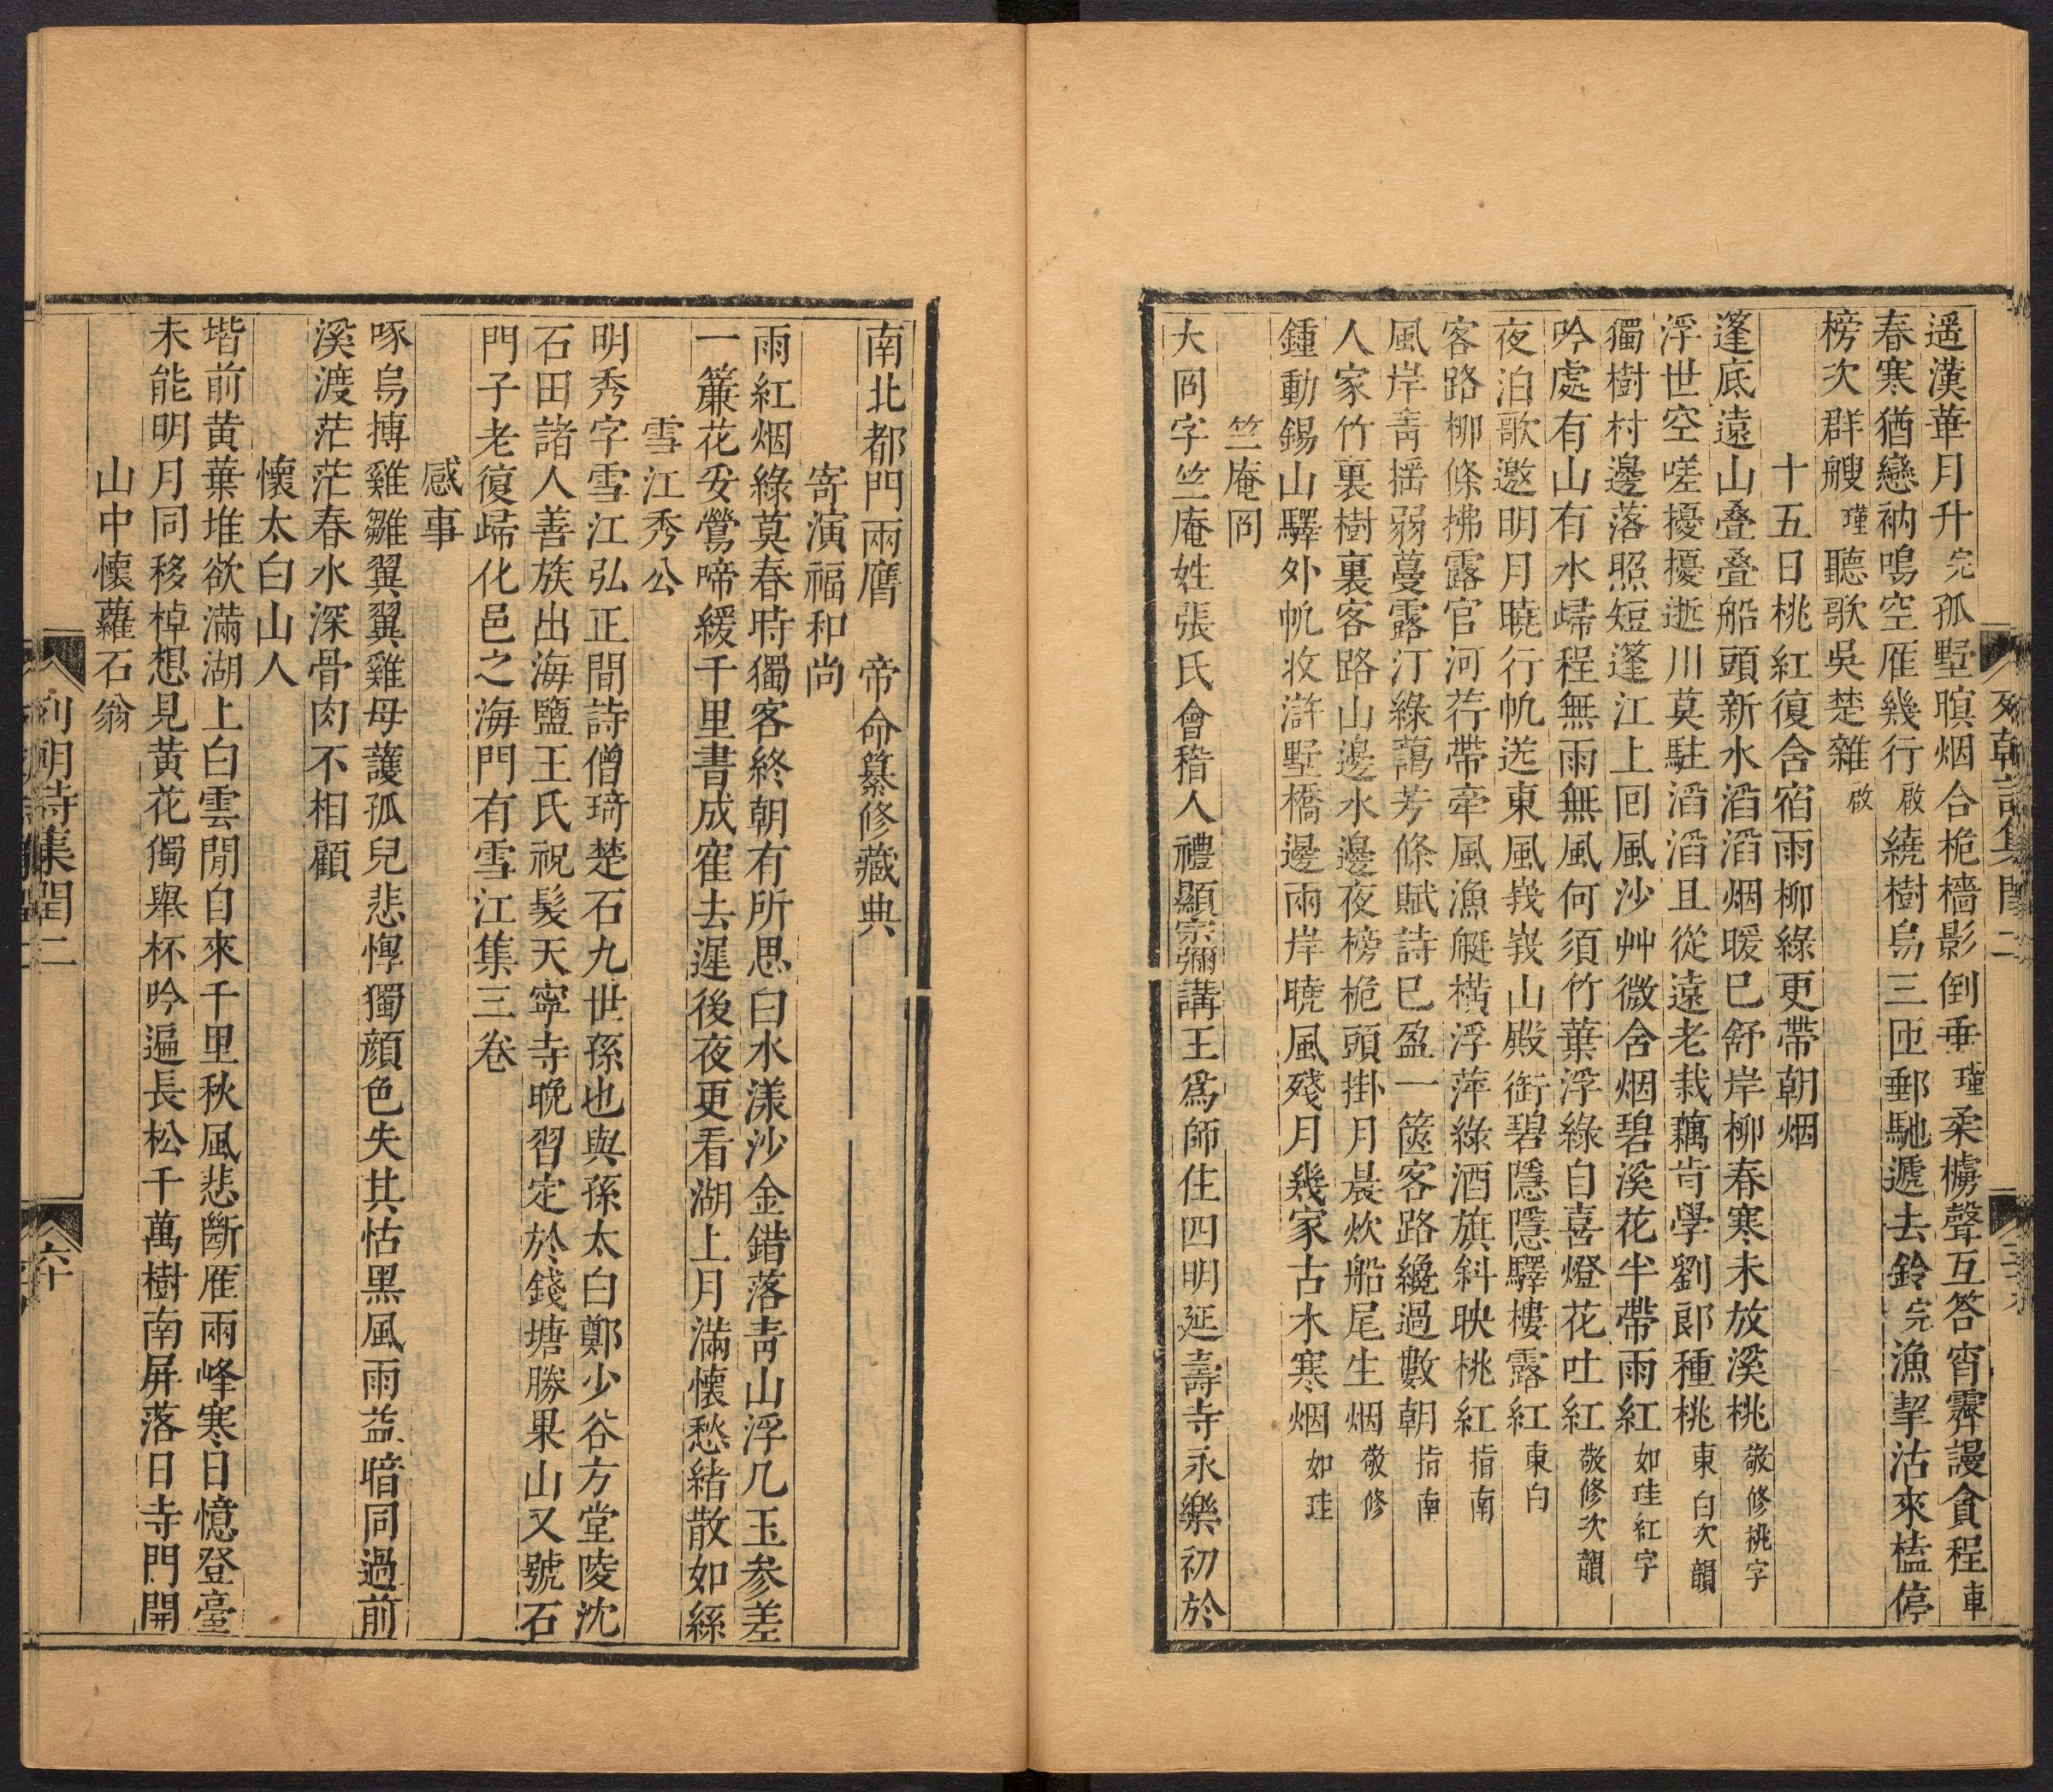 遥漢華月升完孤墅暝烟合桅檣影倒垂瑾柔櫓聲互答宵霽謾貪程車
春寒猶戀衲鳴空雁幾行啟繞樹烏三匝郵馳遞去鈴完漁挈沽來榼停
榜次群艘瑾聽歌吳楚雜啟
十五日桃紅復含宿雨柳綠更帶朝烟
蓬底遠山叠叠船頭新水滔滔烟暖已舒岸柳春寒未放溪桃敬修桃字
浮世空嗟擾擾逝川莫駐滔滔且從遠老栽藕肯學劉郎種桃東白次韻
獨樹村邊落照短蓬江上回風沙艸微含烟碧溪花半帶雨紅如珪紅字
吟處有山有水歸程無雨無風何須竹葉浮綠自喜燈花吐紅敬修次韻
夜泊歌邀明月曉行帆送東風峩峩山殿銜碧隱隱驛樓露紅東白
客路柳條拂露官河荇帶牽風漁艇橫浮萍綠酒旗斜映桃紅指南
風岸青揺弱蔓露汀綠藹芳條賦詩已盈一篋客路纔過數朝指南
人家竹裏樹裏客路山邊水邊夜榜桅頭掛月晨炊船尾生烟敬修
鍾動錫山驛外帆收滸墅橋邊兩岸曉風殘月幾家古木寒烟如珪
竺庵冏
大冏字竺庵姓張氏會稽人禮顯宗彌講王爲師住四明延壽寺永樂初於
南北都門兩膺 帝命纂修藏典
寄演福和尚
雨紅烟綠莫春時獨客終朝有所思白水漾沙金錯落青山浮几玉參差
一簾花妥鶯啼緩千里書成寉去遲後夜更看湖上月滿懷愁緒散如絲
雪江秀公
明秀字雪江弘正間詩僧琦楚石九世孫也與孫太白鄭少谷方堂陵沈
石田諸人善族出海鹽王氏祝髮天寧寺晚習定於錢塘勝果山又號石
門子老復歸化邑之海門有雪江集三卷
感事
啄烏搏雞雛翼翼雞母護孤兒悲惸獨顔色失其怙黑風雨益暗同過前
溪渡茫茫春水深骨肉不相顧
懷太白山人
堦前黄葉堆欲滿湖上白雲閒自來千里秋風悲斷雁兩峰寒日憶登臺
未能明月同移棹想見黄花獨舉杯吟遍長松千萬樹南屏落日寺門開
山中懷蘿石翁
列朝詩集閏二
六十